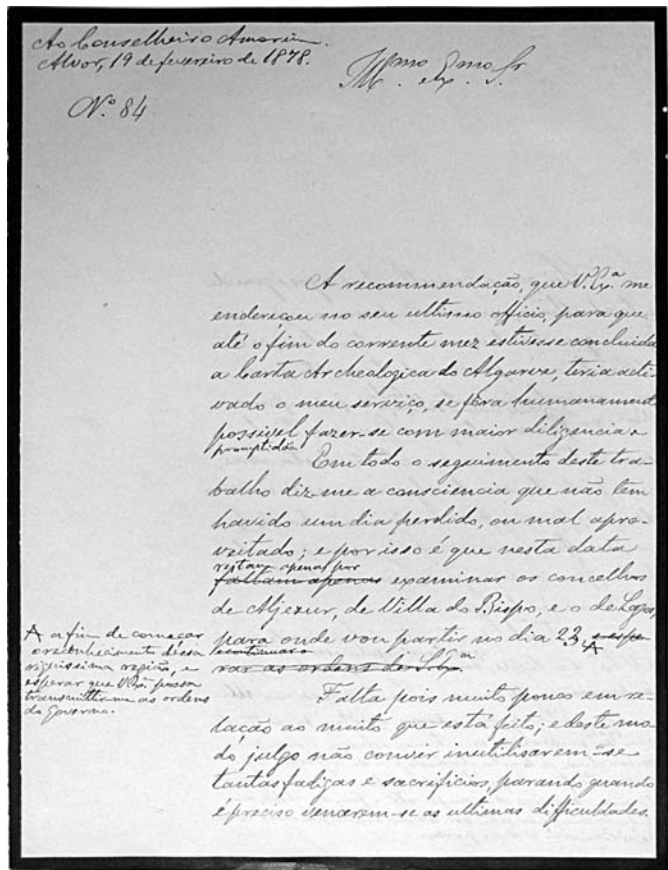 Ao Conselheiro Amorim.
Alvor, 19 de fevereiro de 1878.
Illmo Exmo Sr
Nº 84
A recommendação, que V. Exª me
endereçou no seu ultimo officio, para que
até o fim do corrente mez estivesse concluida
a Carta Archeologica do Algarve, teria acti-
vado o meu serviço, se fôra humanament
possivel fazer-se com maior diligencia e
promptidão.
Em todo o seguimento deste tra-
balho diz-me a consciencia que não tem
havido um dia perdido, ou mal apro-
veitado; e por isso é que nesta data
restam apenas por
faltam apenas examinar os concelhos
de Aljezur, de Villa do Bispo, e o de Lagos,
para onde vou partir no dia 23, e espe
continuar o
rar as ordens de S. Exª
A a fim de começar
o reconhecimento d'essa
riquissima região, e
esperar que V. Exª possa
transmittir-me as ordens
do Governo.
Falta pois muito pouco em re-
lação ao muito que está feito; e deste mo-
do julgo não convir inutilisarem-se
tantas fadigas e sacrificios, parando quando
é preciso vencerem-se as ultimas difficuldades.